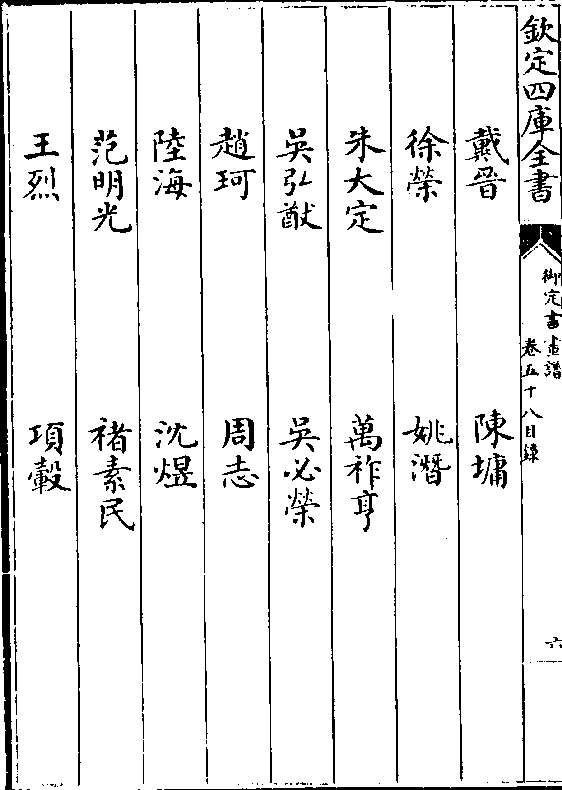 欽定四庫全書
御定書畫譜
卷五十八目錄
六
戴晉 陳墉
徐榮 姚潛
朱大定 萬祚亨
吳弘猷 吳必榮
趙珂 周志
陸海 沈煜
范明光 褚素民
王烈 項轂